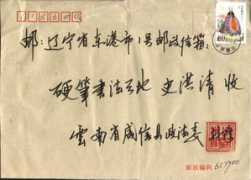 邮:辽宁省东港市1号邮政信箱
硬笔书法天地 史洪清 收
云南省威信县政法委
邮政编码 657900